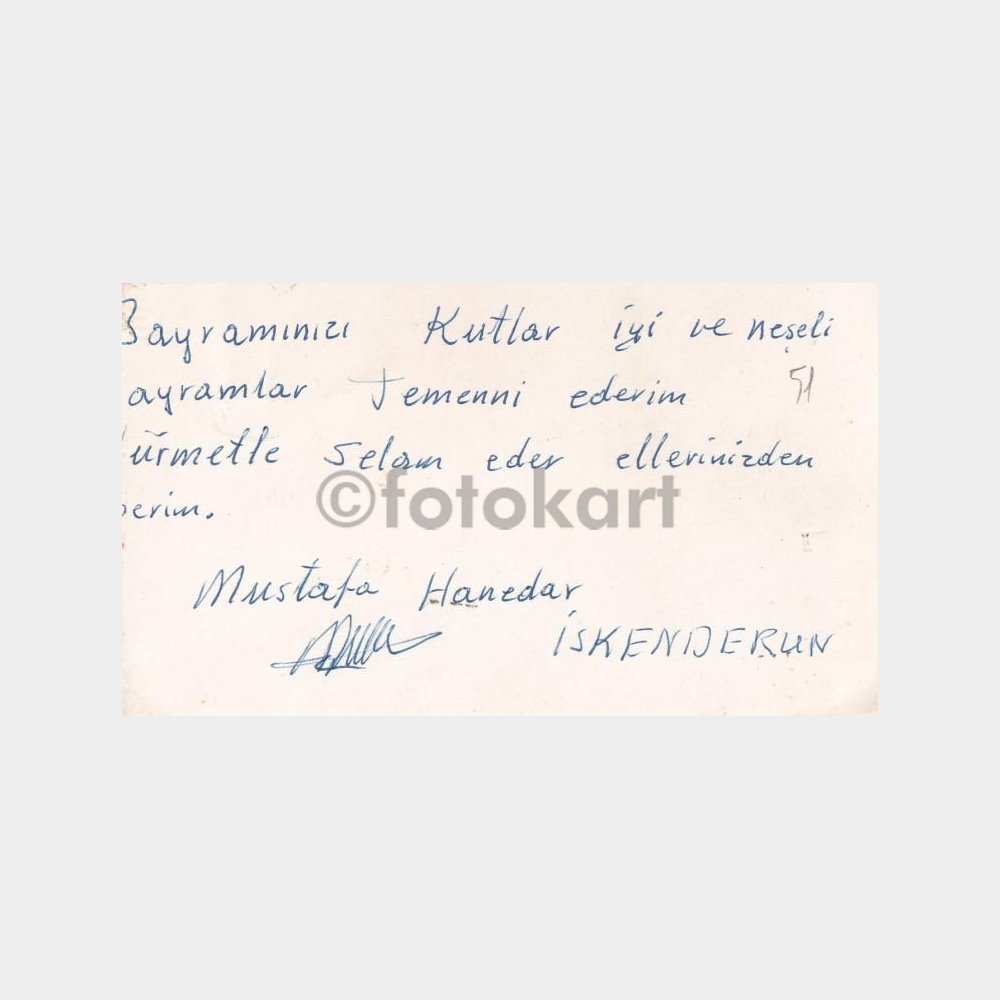 Bayramınızı Kutlar iyi ve neşeli
ayramlar Temenni ederim 51
ürmetle Selam eder ellerinizden
perim.
©fotokart
Mustafa Hanedar
İSKENDERUN